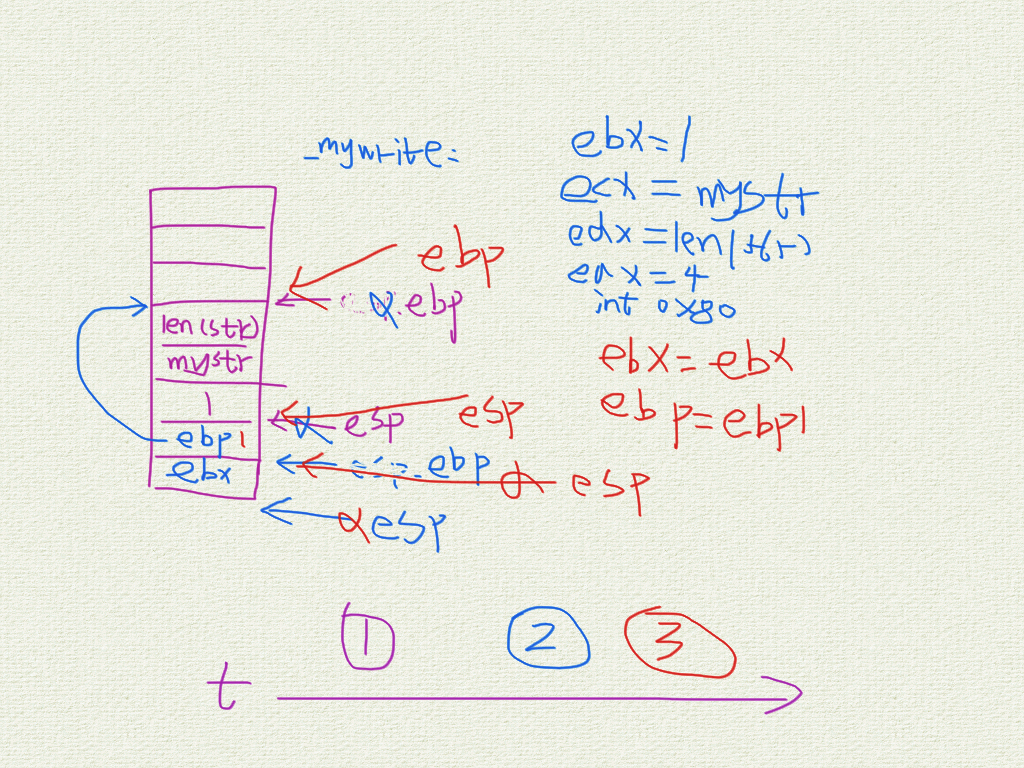 _mywrite:
ebx=1
ecx = mystr
edx =len(str)
eax=4
int 0x80
ebp
ebp
len(str)
mystr
1
ebp1
ebx
esp
esp
ebp
esp
esp
ebx=ebx
ebp=ebp1
1
2
3
t